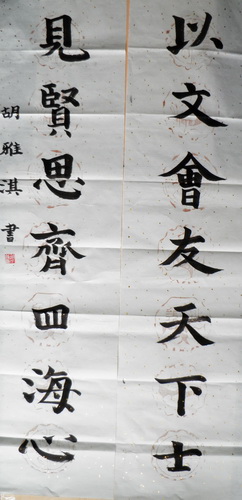 以文會友天下士
見賢思齊四海心
胡雅淇書